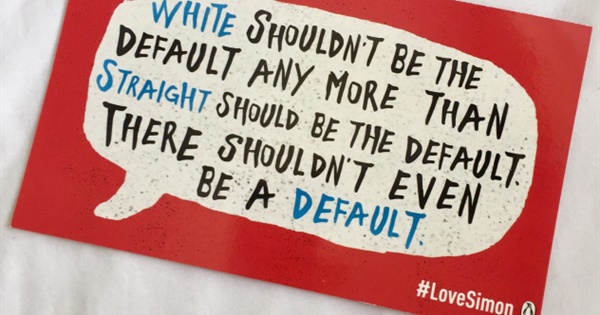 WHITE SHOULDN'T BE THE
DEFAULT ANY MORE THAN
STRAIGHT SHOULD BE THE DEFAULT.
THERE SHOULDN'T EVEN
BE A DEFAULT.
#LoveSimon